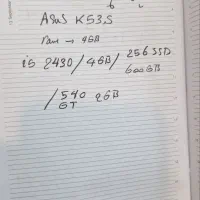 6
Asus K53,S
ram → 4GB
i5 2430/4GB/ 256 SSD
600GB
/540 2GB
GT